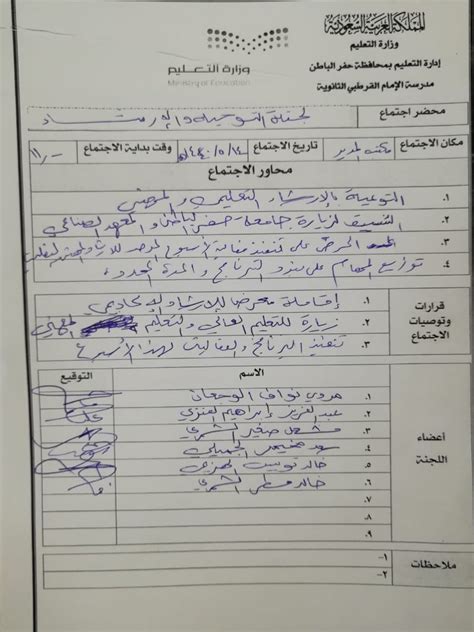 المملكة العربية السعودية
وزارة التعليم
إدارة التعليم بمحافظة حفر الباطن
مدرسة الإمام القرطبي الثانوية
وزارة التعليم
Ministry of Education
محضر اجتماع لجنة التوجيه والإرشاد
مكان الاجتماع مكتب المدير تاريخ الاجتماع ١٤٤٠/٥/١٤ وقت بداية الاجتماع ١١,-
محاور الاجتماع
١. التوعية بالإرشاد التعليمي والمهني
٢. التنسيق لزيارة جامعة حفر الباطن والمعهد الصناعي
٣. الحرص على تنفيذ فعالية أسبوع
٤. توزيع المهام على بنود البرنامج والمدة المحددة
قرارات وتوصيات الاجتماع
١. إقامة معرض للإرشاد الأكاديمي
٢. زيارة للتعليم العالي والتعليم المهني
٣. تنفيذ البرنامج والفعاليات لهذا الأسبوع
أعضاء اللجنة
الاسم التوقيع
١. نواف
٢. عبدالعزيز إبراهيم العنزي
٣. مشعل صغير الشمري
٤. سعد
٥. خالد
٦. خالد مطر الشمري
٧.
٨.
٩.
ملاحظات
١-
٢-